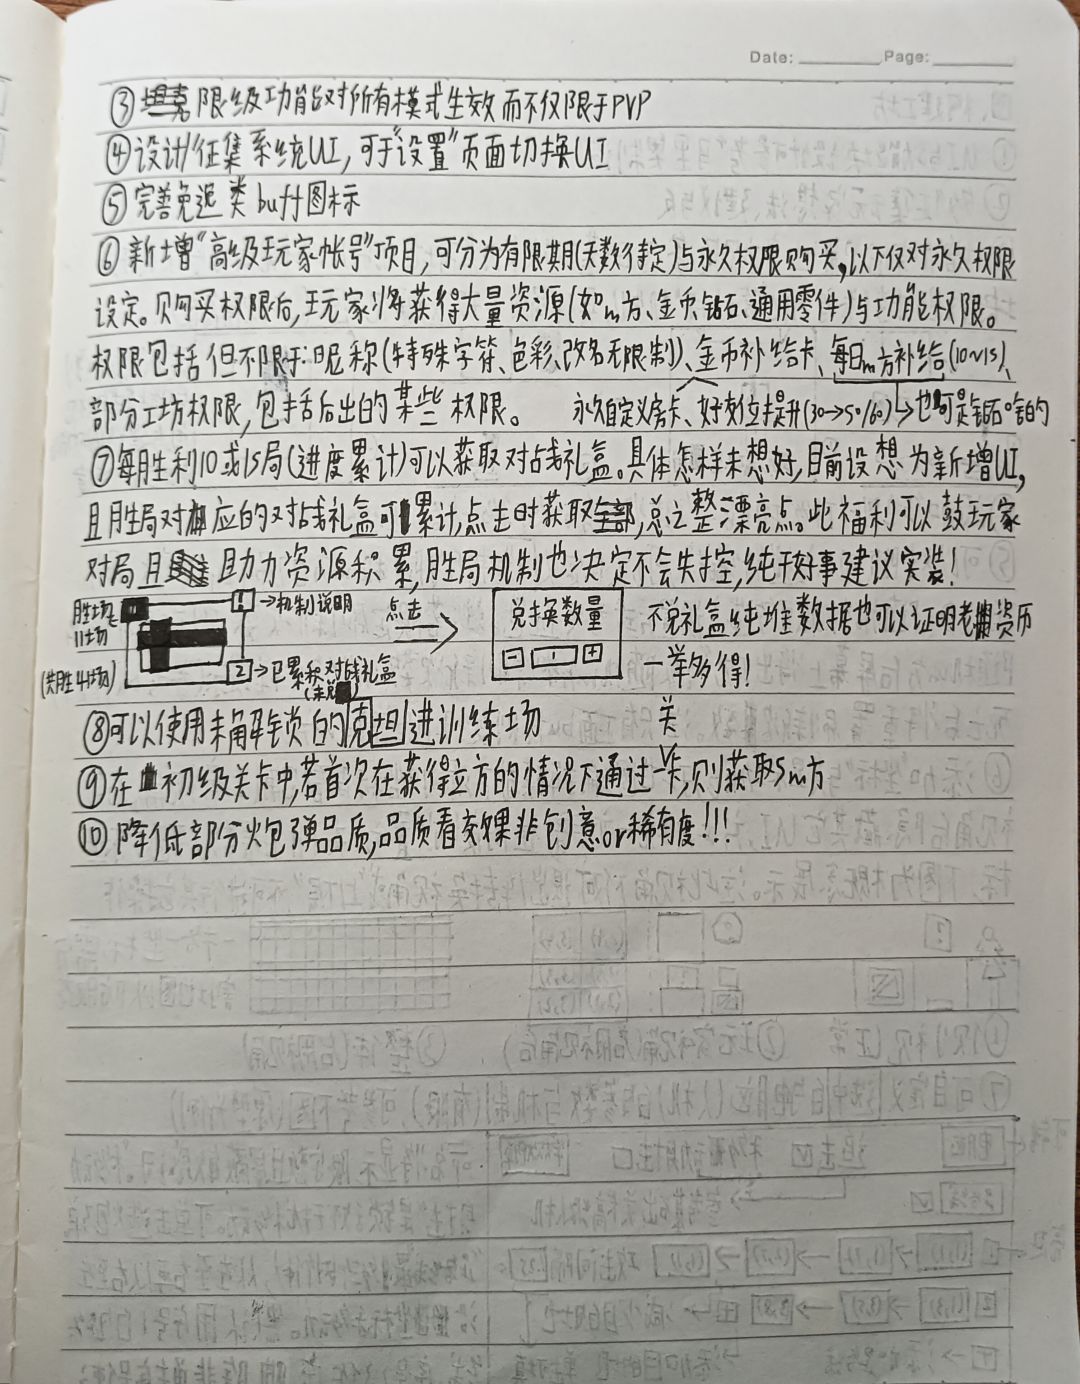 Date: Page:
③坦克限级功能对所有模式生效而不仅限于PVP
④设计征集系统UI,可于"设置"页面切换UI
⑤完善免追类buff图标
⑥新增"高级玩家帐号"项目,可分为有限期(天数待定)与永久权限购买,以下仅对永久权限
设定。购买权限后,玩家将获得大量资源(如m方、金币、钻石、通用零件)与功能权限。
权限包括但不限于:昵称(特殊字符、色彩、改名无限制)、金币补给卡、每日m方补给(10~15)、
部分工坊权限,包括后出的某些权限。 永久自定义房卡、好友位提升(30→50/60)→也可是钻石啥的
⑦每胜利10或15局(进度累计)可以获取对战礼盒。具体怎样未想好,目前设想为新增UI,
且胜局对应的对战礼盒可累计,点击时获取全部,总之整漂亮点。此福利可以鼓玩家
对局且助力资源积累,胜局机制也决定不会失控,纯好事建议实装!
胜场 1→机制说明 点击 兑换数量 不说礼盒纯堆数据也可以证明老资历
11场
(共胜41场) 2→已累积对战礼盒 - 1 + 一举多得!
⑧可以使用未解锁的克坦进训练场
⑨在初级关卡中,若首次在获得立方的情况下通过一关卡,则获取5m方
⑩降低部分炮弹品质,品质看效果非创意or稀有度!!!